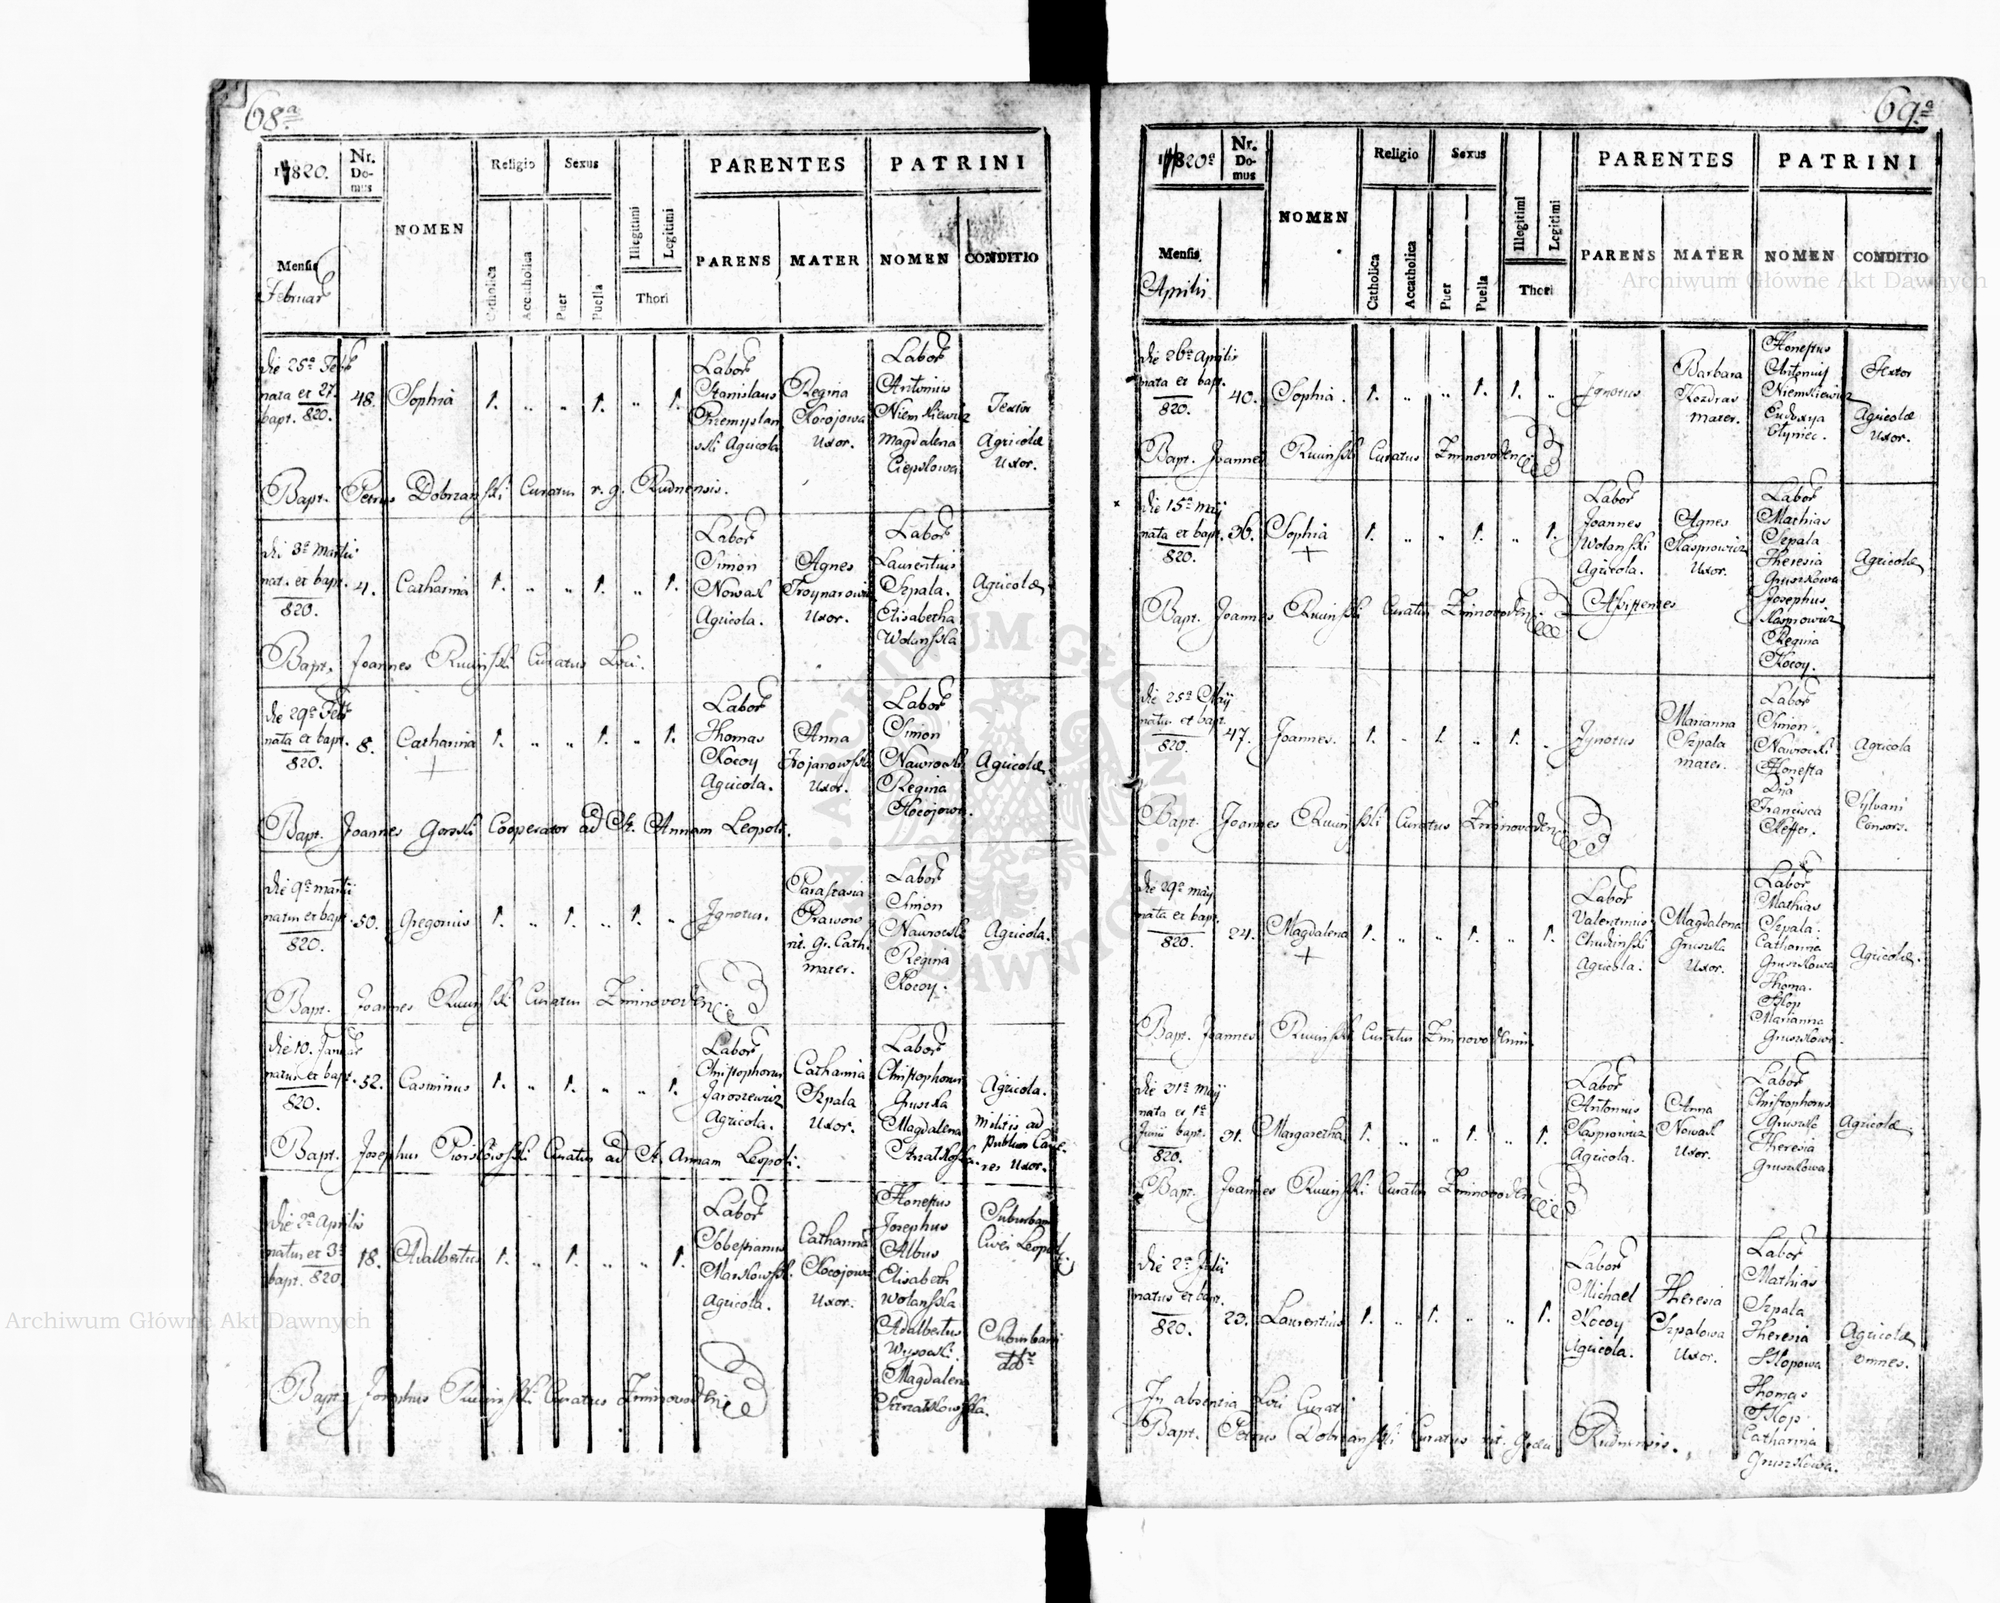 68.a
17820.
Nr. Do- mus
NOMEN
Religio
Sexus
Illegitimi
Legitimi
PARENTES
PATRINI
Mensis
Februar
Catholica
Accatholica
Puer
Puella
Thori
PARENS
MATER
NOMEN
CONDITIO
die 25a Feb
nata et 27.
bapt. 820.
48.
Sophia
1. „ „ 1. „ 1.
Labor
Stanislaus
Przemyslan
ski Agricola
Regina
Kocojowa
Uxor.
Labor
Antonius
Niemkiewicz
Magdalena
Ciepslowa
Textor
Agricolæ
Uxor.
Bapt. Petrus Dobrzański Curatus r. g. Rudnensis.
die 3a Martii
nat. et bapt.
820.
4.
Catharina
1. „ „ 1. „ 1.
Labor
Simon
Nowak
Agricola.
Agnes
Troynarowi
Uxor.
Labor
Laurentius
Szpala.
Elisabetha
Wolańska
Agricolæ
Bapt. Joannes Ruciński Curatus Loci.
die 29a Feb
nata et bapt.
820.
8.
Catharina
+
1. „ „ 1. „ 1.
Labor
Thomas
Kocoy
Agricola.
Anna
Trojanowska
Uxor.
Labor
Simon
Nawrocki
Regina
Kocojowa
Agricolæ
Bapt. Joannes Gorski Cooperator ad St. Annam Leopoli.
die 9a Martii
natus et bapt.
820.
50.
Gregorius
1. „ 1. „ 1. „
Ignotus.
Parastasia
Prawow
rit. Gr. Cath.
mater.
Labor
Simon
Nawrocki
Regina
Kocoy.
Agricola.
Bapt. Joannes Ruciński Curatus Zminovodensis
die 10. Januar
natus et bapt.
820.
52.
Casimirus
1. „ 1. „ „ 1.
Labor
Christophorus
Jaroszewicz
Agricola.
Catharina
Szpala
Uxor.
Labor
Christophorus
Gruszka
Magdalena
Strzalkoska.
Agricola.
Militis ad
publicos Carce-
res Uxor.
Bapt. Josephus Piorkowski Curatus ad St. Annam Leopoli.
die 2a Aprilis
natus et 3a
bapt. 820.
18.
Adalbertus
1. „ 1. „ „ 1.
Labor
Sobestianus
Markowski.
Agricola.
Catharina
Kocojowa
Uxor.
Honestus
Josephus
Albus
Elisabeth
Wolańska
Adalbertus
Wysocki.
Magdalena
Strzalkowska.
Suburban
Civis Leopol
Suburbani
Bapt. Josephus Ruciński Curatus Zminovodensis
69.a
17820a
Nr. Do- mus
NOMEN
Religio
Sexus
Illegitimi
Legitimi
PARENTES
PATRINI
Mensis
Aprilis
Catholica
Accatholica
Puer
Puella
Thori
PARENS
MATER
NOMEN
CONDITIO
die 26a Aprilis
nata et bapt.
820.
40.
Sophia.
1. „ „ 1. 1. „
Ignotus
Barbara
Kozdras
mater.
Honestus
Antonius
Niemkiewicz
Eudoxya
Olyniec.
Textor
Agricolæ
Uxor.
Bapt. Joannes Ruciński Curatus Zminovodensis
die 15a Maij
nata et bapt.
820.
36.
Sophia
+
1. „ „ 1. „ 1.
Labor
Joannes
Wolański
Agricola.
Agnes
Kasprowicz
Uxor.
Labor
Mathias
Szpala
Theresia
Gruszkowa
Assistentes
Josephus
Kasprowicz
Regina
Kocoy.
Agricolæ
Bapt. Joannes Ruciński Curatus Zminovodensis
die 25a Maij
natus et bapt.
820.
47.
Joannes.
1. „ 1. „ 1. „
Ignotus
Marianna
Szpala
mater.
Labor
Simon
Nawrocki
Honesta
Dña
Francisca
Steffer.
Agricola
Sylvani
Consors.
Bapt. Joannes Ruciński Curatus Zminovodensis
die 29a Maij
nata et bapt.
820.
24.
Magdalena
+
1. „ „ 1. „ 1.
Labor
Valentinus
Chudziński
Agricola.
Magdalena
Gruszka
Uxor.
Labor
Mathias
Szpala.
Catharina
Gruszkowa
Thoma.
Sklop
Marianna
Gruszkowa.
Agricolæ.
Bapt. Joannes Ruciński Curatus Zminovodensis
die 31a Maij
nata et 1a
Junii bapt.
820.
31.
Margaretha
1. „ „ 1. „ 1.
Labor
Antonius
Kasprowicz
Agricola.
Anna
Nowak
Uxor.
Labor
Christophorus
Gruszka
Theresia
Gruszkowa.
Agricolæ
Bapt. Joannes Ruciński Curatus Zminovodensis
die 2a Julii
natus et bapt.
820.
23.
Laurentius
1. „ 1. „ „ 1.
Labor
Michael
Kocoy
Agricola.
Theresia
Szpalowa
Uxor.
Labor
Mathias
Szpala
Theresia
Sklopowa
Thomas
Sklop
Catharina
Gruszkowa.
Agricolæ
omnes.
In absentia Loci Curati
Bapt. Petrus Dobrzański Curatus rit. Græci Rudnensis.
Archiwum Główne Akt Dawnych
Archiwum Główne Akt Dawnych